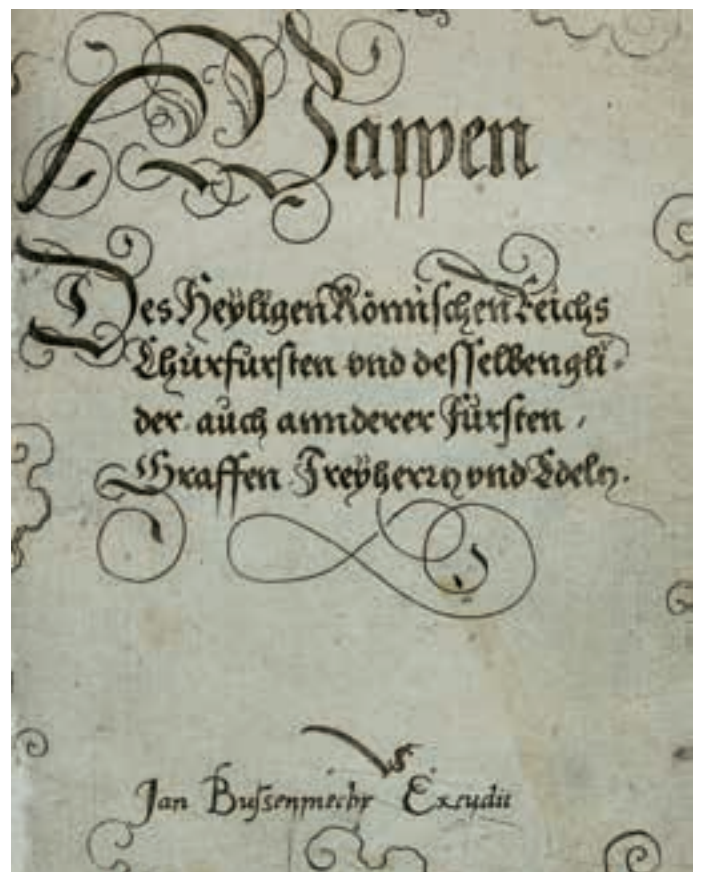 Wappen
Des Heÿligen Römischen Reichs
Churfürsten vnd desselben gli-
der auch annderer Fürsten,
Graffen Freÿherrn vnd Edeln.
Jan Bussenmechr Excudit